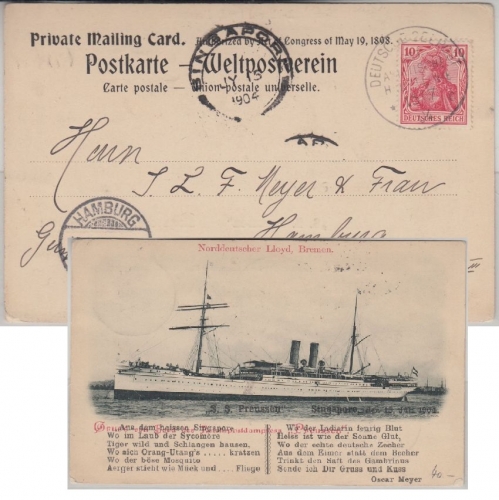 Private Mailing Card. Authorized by Act of Congress of May 19, 1898.
Postkarte – Weltpostverein
Carte postale – Union postale universelle.
SINGAPORE
JY 15
1904
DEUTSCHE
10 10
DEUTSCHES REICH
Herrn
S. L. F. Meyer & Frau
HAMBURG
Hamburg
Norddeutscher Lloyd, Bremen.
S. S. Preussen Singapore,
Aus dem heissen Singapore
Wo im Laub der Sycomore
Tiger wild und Schlangen hausen,
Wo sich Orang-Utang's ..... kratzen
Wo der böse Mosquito
Aerger sticht wie Mück und .... Fliege
Wo der Indierin feurig Blut
Heiss ist wie der Sonne Glut,
Wo der echte deutsche Zecher
Aus dem Eimer statt dem Becher
Trinkt den Saft des Gambrinus
Sende ich Dir Gruss und Kuss
Oscar Meyer
40 –